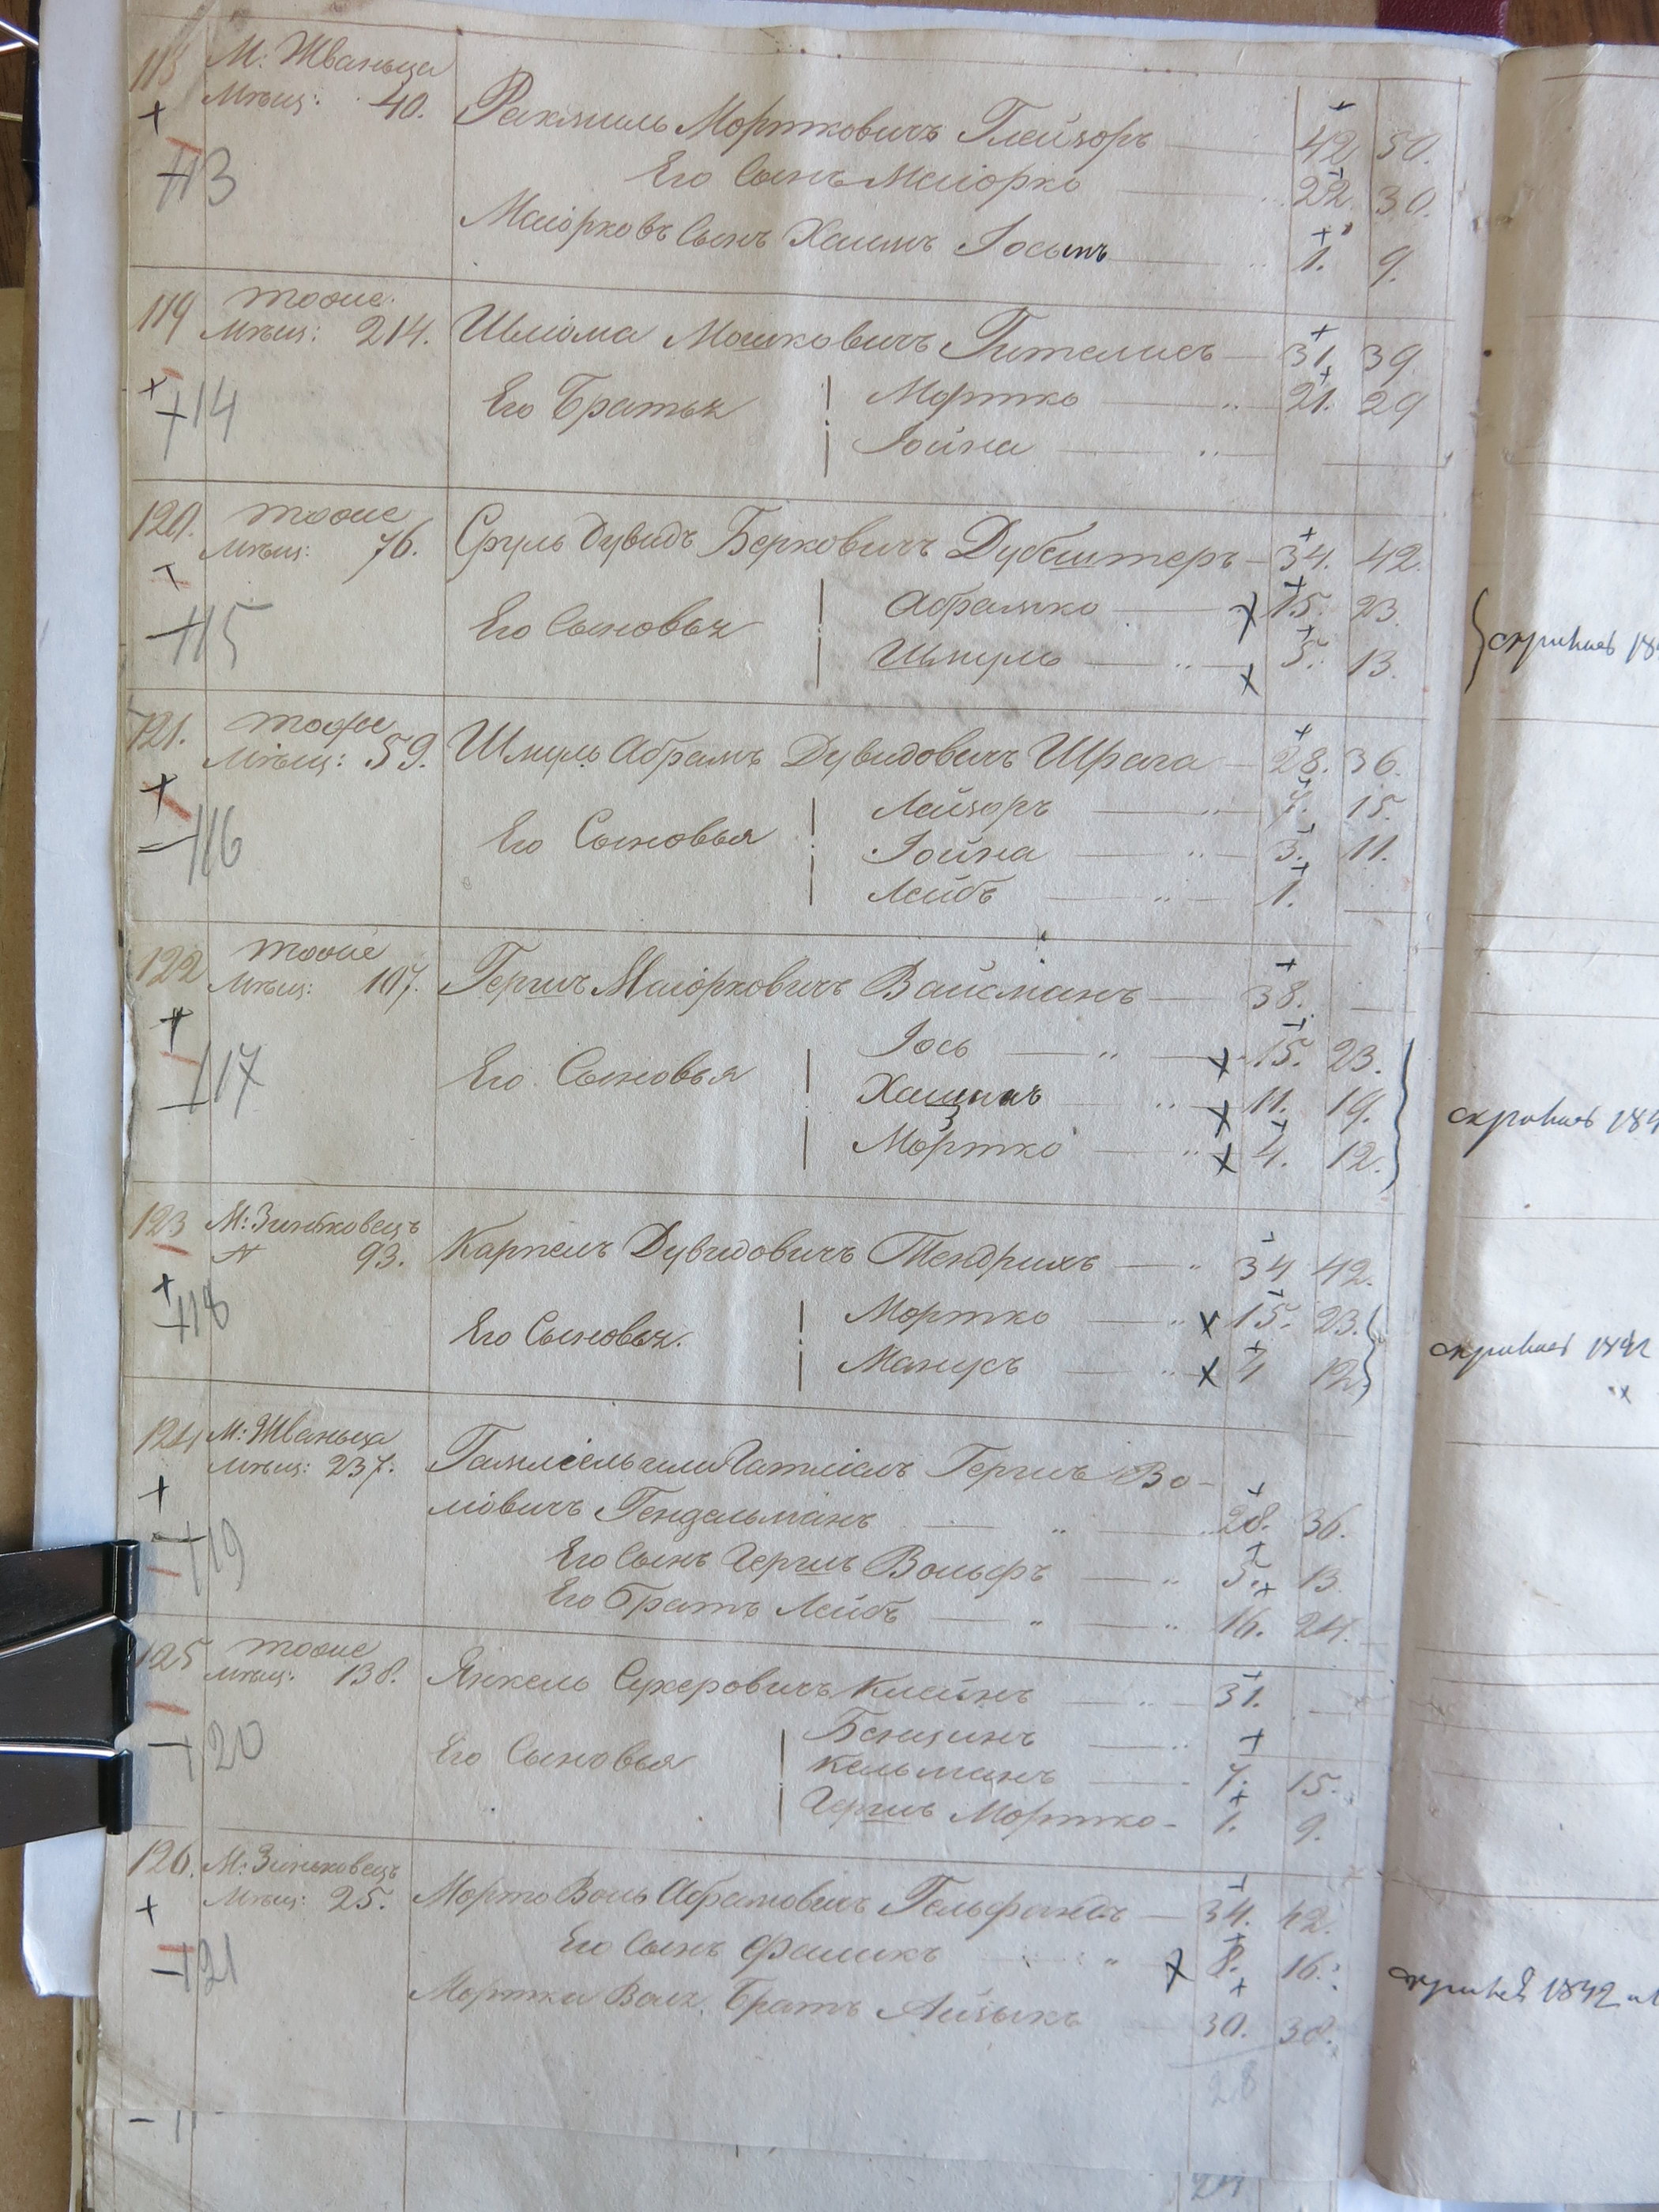 118 М: Жванъца
Мѣщ: 40. Рахмиль Мортковичъ Глейзоръ 42. 50.
+13 Его Сынъ Маіорко 22. 30.
Маіорковъ Сынъ Хаимъ Іосьпъ 1. 9.
119 тоже
Мѣщ: 214. Шліома Мошковичъ Гителисъ 31. 39.
+14 Его Братья Мортко 21. 29
Іойна
120. тоже
Мѣщ: 76. Сруль Дувидъ Берковичъ Дубештеръ 34. 42.
+15 Его Сыновья Абрамко 15. 23.
Шмуль 5. 13.
121. тоже
Мѣщ: 59. Шмуль Абрамъ Дувидовичъ Шрага 28. 36.
+16 Его Сыновья Лейзоръ 7. 15.
Іойна 3. 11.
Лейбъ 1.
122 тоже
Мѣщ: 107. Гершъ Маіорковичъ Вайсманъ 38.
+17 Его Сыновья Іось 15. 23.
Хаимъ 11. 19.
Мортко 4. 12.
123 М: Зиньковецъ
N 93. Карпель Дувидовичъ 34 42.
+18 Его Сыновья. Мортко 15. 23.
Манусъ 4 12.
1842
124 М: Жванъца
Мѣщ: 237. или Гершъ Во-
ліовичъ Гендельманъ 28. 36.
+19 Его Сынъ Гершъ Вольфъ 5. 13.
Его Братъ Лейбъ 16. 24.
125 тоже
Мѣщ: 138. Янкель Сухеровичъ Клейнъ 31.
+20 Его Сыновья Бенционъ
Кельманъ 7. 15.
Гершъ Мортко 1. 9.
126. М: Зиньковецъ
Мѣщ: 25. Мортко Воль Абрамовичъ Гельфандъ 34. 42.
+21 Его Сынъ Фашикъ 8. 16.
1842
Мортка Воля Братъ Айзыкъ 30. 38.
28